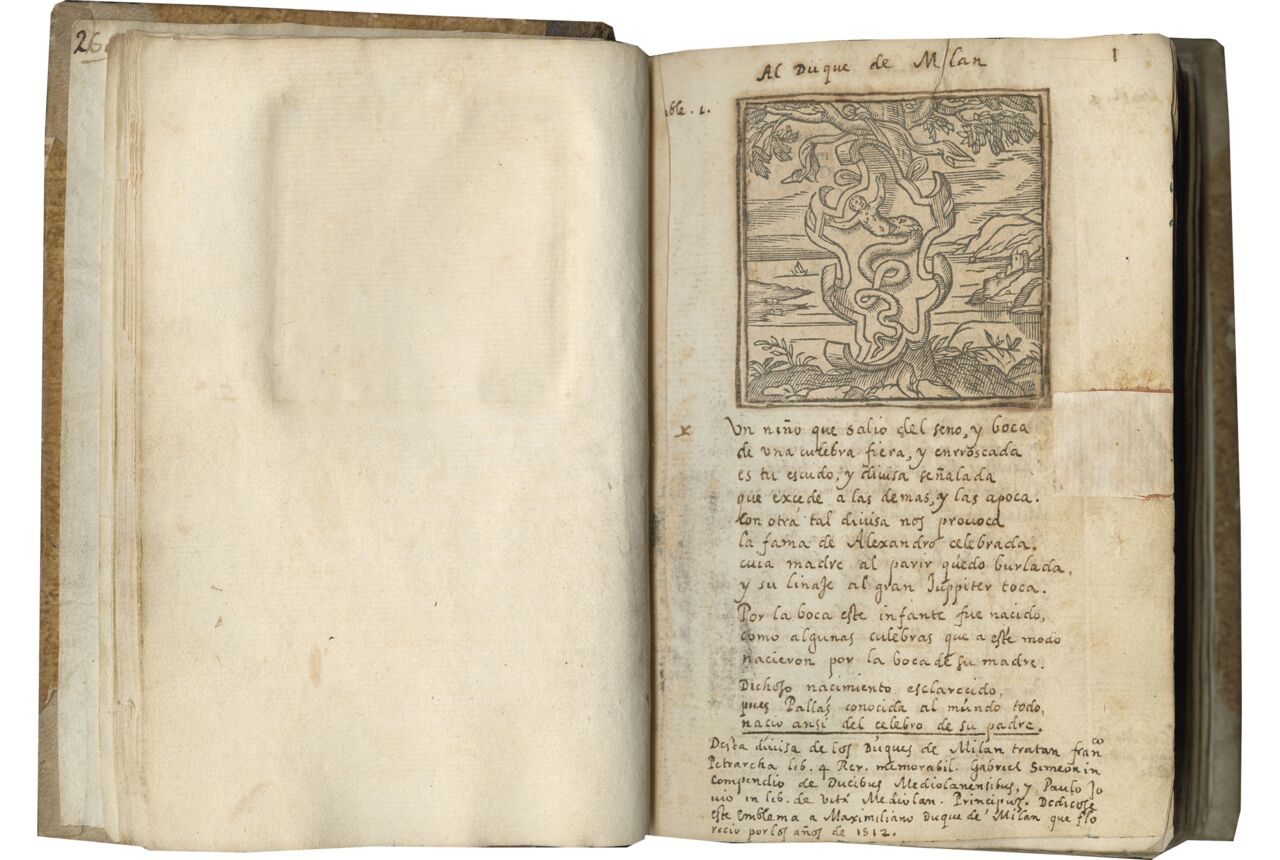 26
Al Duque de Milan
1
ble. 1.
x
Un niño que salio del seno, y boca
de una culebra fiera, y enrroscada
es tu escudo, y divisa señalada
que excede a las demas, y las apoca.
Con otra tal divisa nos provoca
la fama de Alexandro celebrada,
cuia madre al parir quedo burlada,
y su linaje al gran Juppiter toca.
Por la boca este infante fue nacido,
como algunas culebras que a este modo
nacieron por la boca de su madre.
Dichoso nacimiento esclarecido,
pues Pallas conocida al mundo todo,
nacio ansi del celebro de su padre.
Desta divisa de los Duques de Milan tratan franco
Petrarcha lib. 4 Rer. memorabil. Gabriel Simeon in
compendio de Ducibus Mediolanensibus, y Paulo Jo
uio in lib. de vita Mediolan. Principus. Dedicose
este emblema a Maximiliano Duque de Milan que flo
recio por los años de 1512.